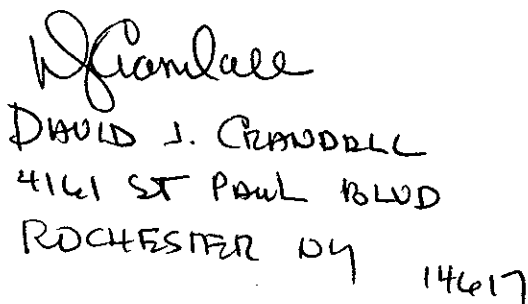 DJCrandall
DAVID J. CRANDALL
4161 ST PAUL BLVD
ROCHESTER NY
14617